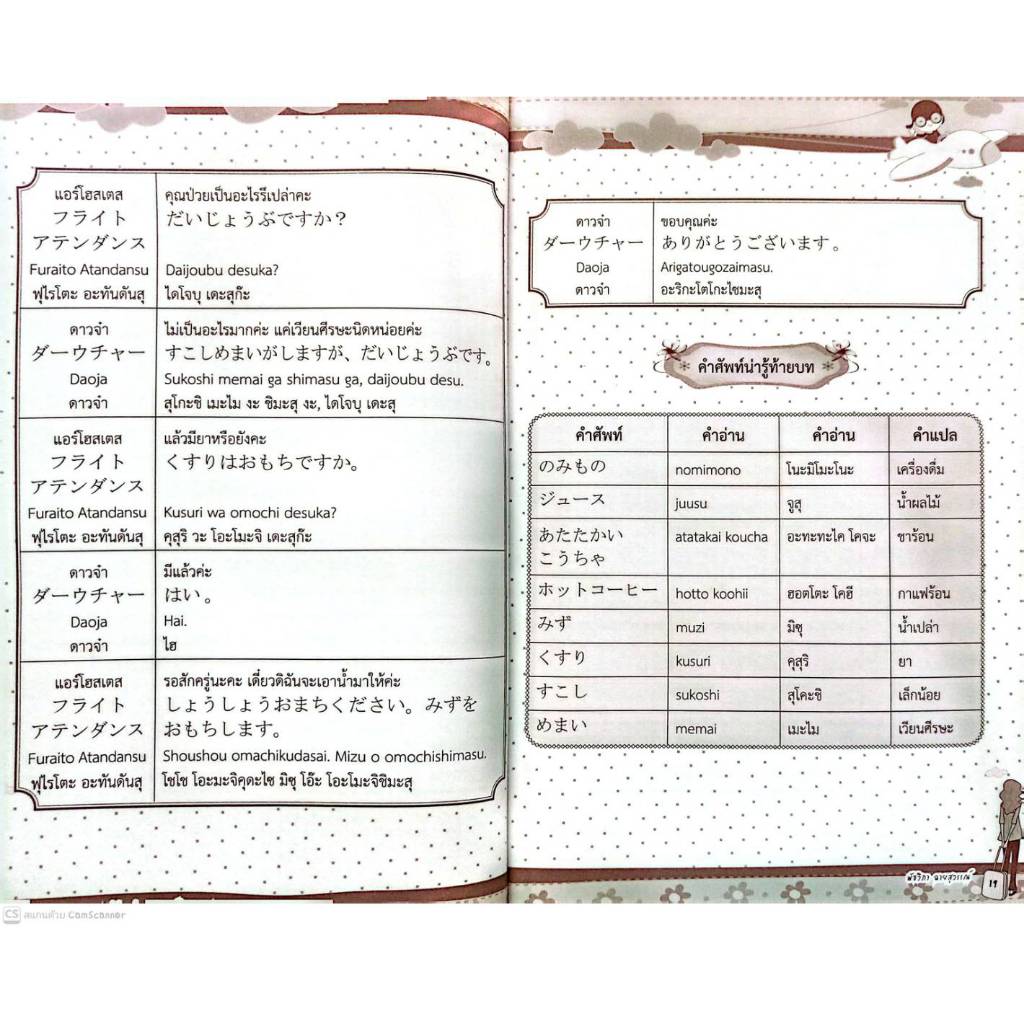 แอร์โฮสเตส คุณป่วยเป็นอะไรรึเปล่าคะ
フライト だいじょうぶですか？
アテンダンス
Furaito Atandansu Daijoubu desuka?
ฟุไรโตะ อะทันดันสุ ไดโจบุ เดะสุก๊ะ
ดาวจ๋า ไม่เป็นอะไรมากค่ะ แค่เวียนศีรษะนิดหน่อยค่ะ
ダーウチャー すこしめまいがしますが、だいじょうぶです。
Daoja Sukoshi memai ga shimasu ga, daijoubu desu.
ดาวจ๋า สุโกะชิ เมะไม งะ ชิมะสุ งะ, ไดโจบุ เดะสุ
แอร์โฮสเตส แล้วมียาหรือยังคะ
フライト くすりはおもちですか。
アテンダンス
Furaito Atandansu Kusuri wa omochi desuka?
ฟุไรโตะ อะทันดันสุ คุสุริ วะ โอะโมะจิ เดะสุก๊ะ
ดาวจ๋า มีแล้วค่ะ
ダーウチャー はい。
Daoja Hai.
ดาวจ๋า ไฮ
แอร์โฮสเตส รอสักครู่นะคะ เดี๋ยวดิฉันจะเอาน้ำมาให้ค่ะ
フライト しょうしょうおまちください。みずを
アテンダンス おもちします。
Furaito Atandansu Shoushou omachikudasai. Mizu o omochishimasu.
ฟุไรโตะ อะทันดันสุ โชโช โอะมะจิคุดะไซ มิซุ โอ๊ะ โอะโมะจิชิมะสุ
ดาวจ๋า ขอบคุณค่ะ
ダーウチャー ありがとうございます。
Daoja Arigatougozaimasu.
ดาวจ๋า อะริกะโตโกะไซมะสุ
คำศัพท์น่ารู้ท้ายบท
คำศัพท์ คำอ่าน คำอ่าน คำแปล
のみもの nomimono โนะมิโมะโนะ เครื่องดื่ม
ジュース juusu จูสุ น้ำผลไม้
あたたかい atatakai koucha อะทะทะไค โคจะ ชาร้อน
こうちゃ
ホットコーヒー hotto koohii ฮอตโตะ โคฮี กาแฟร้อน
みず muzi มิซุ น้ำเปล่า
くすり kusuri คุสุริ ยา
すこし sukoshi สุโคะชิ เล็กน้อย
めまい memai เมะไม เวียนศีรษะ
พัชริภา ฉายสุวรรณ์
19
CS สแกนด้วย CamScanner